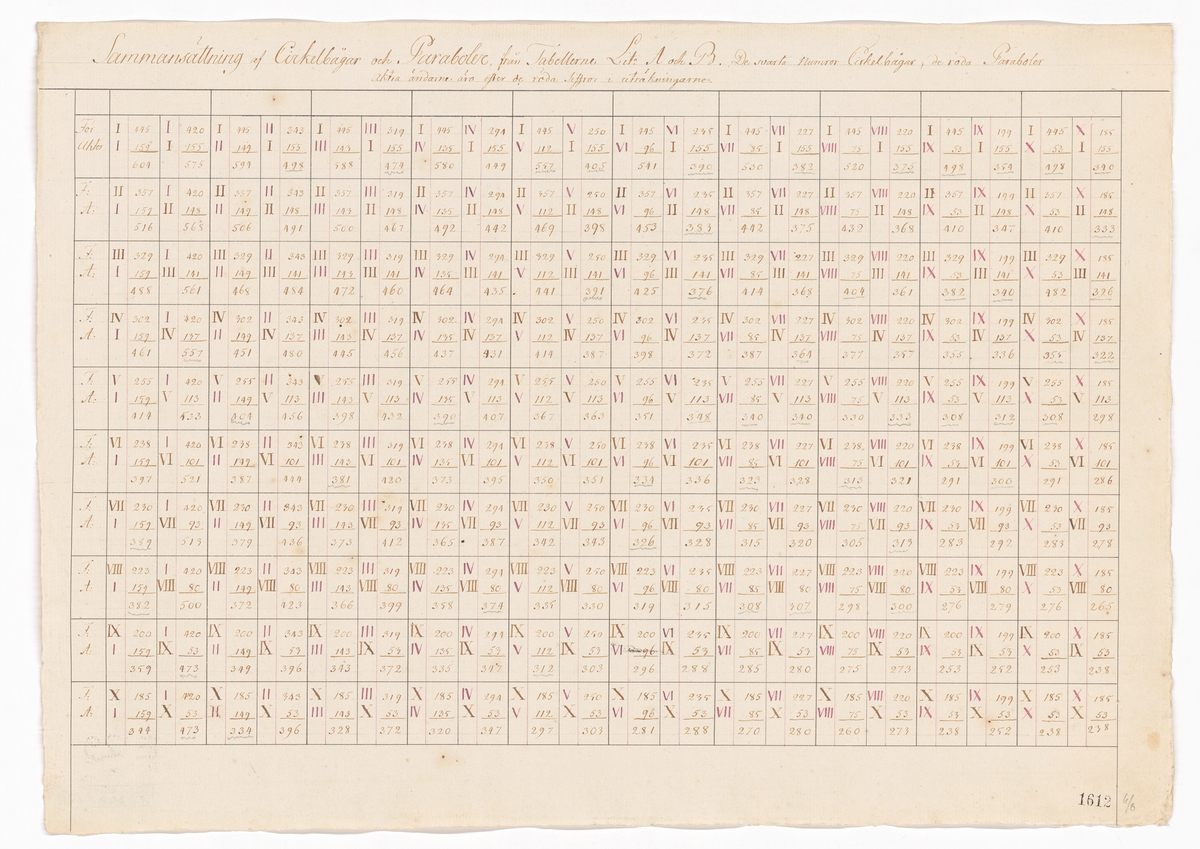 Sammansättning af Cirkelbågar och Paraboler, från Tabellerne Litt. A och B. De svarta Numror Cirkelbågar, de röda Paraboler
Aktra ändarne äro efter de röda Siffror i uträkningarne.
För I 445 I 420 I 445 II 343 I 445 III 319 I 445 IV 294 I 445 V 250 I 445 VI 235 I 445 VII 227 I 445 VIII 220 I 445 IX 199 I 445 X 185
Akter I 159 I 155 II 149 I 155 III 143 I 155 IV 135 I 155 V 112 I 155 VI 96 I 155 VII 85 I 155 VIII 75 I 155 IX 53 I 155 X 53 I 155
604 575 594 498 588 474 580 449 557 405 541 390 530 382 520 375 498 354 498 340
F. II 357 I 420 II 357 II 343 II 357 III 319 II 357 IV 294 II 357 V 250 II 357 VI 235 II 357 VII 227 II 357 VIII 220 II 357 IX 199 II 357 X 185
A: I 159 II 148 II 149 II 148 III 143 II 148 IV 135 II 148 V 112 II 148 VI 96 II 148 VII 85 II 148 VIII 75 II 148 IX 53 II 148 X 53 II 148
516 568 506 491 500 467 492 442 469 398 453 383 442 375 432 368 410 347 410 333
F. III 329 I 420 III 329 II 343 III 329 III 319 III 329 IV 294 III 329 V 250 III 329 VI 235 III 329 VII 227 III 329 VIII 220 III 329 IX 199 III 329 X 185
A: I 159 III 141 II 149 III 141 III 143 III 141 IV 135 III 141 V 112 III 141 VI 96 III 141 VII 85 III 141 VIII 75 III 141 IX 53 III 141 X 53 III 141
488 561 468 484 472 460 464 435 441 391 425 376 414 368 404 361 382 340 482 326
F. IV 302 I 420 IV 302 II 343 IV 302 III 319 IV 302 IV 294 IV 302 V 250 IV 302 VI 235 IV 302 VII 227 IV 302 VIII 220 IV 302 IX 199 IV 302 X 185
A: I 159 IV 137 II 149 IV 137 III 143 IV 137 IV 135 IV 137 V 112 IV 137 VI 96 IV 137 VII 85 IV 137 VIII 75 IV 137 IX 53 IV 137 X 53 IV 137
461 557 451 480 445 456 437 431 414 387 398 372 387 364 377 357 355 336 355 322
F. V 255 I 420 V 255 II 343 V 255 III 319 V 255 IV 294 V 255 V 250 V 255 VI 235 V 255 VII 227 V 255 VIII 220 V 255 IX 199 V 255 X 185
A: I 159 V 113 II 149 V 113 III 143 V 113 IV 135 V 113 V 112 V 113 VI 96 V 113 VII 85 V 113 VIII 75 V 113 IX 53 V 113 X 53 V 113
414 533 404 456 398 432 390 407 367 363 351 348 340 340 330 333 308 312 308 298
F. VI 238 I 420 VI 238 II 343 VI 238 III 319 VI 238 IV 294 VI 238 V 250 VI 238 VI 235 VI 238 VII 227 VI 238 VIII 220 VI 238 IX 199 VI 238 X 185
A: I 159 VI 101 II 149 VI 101 III 143 VI 101 IV 135 VI 101 V 112 VI 101 VI 96 VI 101 VII 85 VI 101 VIII 75 VI 101 IX 53 VI 101 X 53 VI 101
397 521 387 444 381 420 373 395 350 351 334 336 323 328 313 321 291 300 291 286
F. VII 230 I 420 VII 230 II 343 VII 230 III 319 VII 230 IV 294 VII 230 V 250 VII 230 VI 235 VII 230 VII 227 VII 230 VIII 220 VII 230 IX 199 VII 230 X 185
A: I 159 VII 93 II 149 VII 93 III 143 VII 93 IV 135 VII 93 V 112 VII 93 VI 96 VII 93 VII 85 VII 93 VIII 75 VII 93 IX 53 VII 93 X 53 VII 93
389 513 379 436 373 412 365 387 342 343 326 328 315 320 305 313 283 292 283 278
F. VIII 223 I 420 VIII 223 II 343 VIII 223 III 319 VIII 223 IV 294 VIII 223 V 250 VIII 223 VI 235 VIII 223 VII 227 VIII 223 VIII 220 VIII 223 IX 199 VIII 223 X 185
A: I 159 VIII 80 II 149 VIII 80 III 143 VIII 80 IV 135 VIII 80 V 112 VIII 80 VI 96 VIII 80 VII 85 VIII 80 VIII 75 VIII 80 IX 53 VIII 80 X 53 VIII 80
382 500 372 423 366 399 358 374 335 330 319 315 308 307 298 300 276 279 276 265
F. IX 200 I 420 IX 200 II 343 IX 200 III 319 IX 200 IV 294 IX 200 V 250 IX 200 VI 235 IX 200 VII 227 IX 200 VIII 220 IX 200 IX 199 IX 200 X 185
A: I 159 IX 53 II 149 IX 53 III 143 IX 53 IV 135 IX 53 V 112 IX 53 VI 96 IX 53 VII 85 IX 53 VIII 75 IX 53 IX 53 IX 53 X 53 IX 53
359 473 349 396 343 372 335 347 312 303 296 288 285 280 275 273 253 252 253 238
F. X 185 I 420 X 185 II 343 X 185 III 319 X 185 IV 294 X 185 V 250 X 185 VI 235 X 185 VII 227 X 185 VIII 220 X 185 IX 199 X 185 X 185
A: I 159 X 53 II 149 X 53 III 143 X 53 IV 135 X 53 V 112 X 53 VI 96 X 53 VII 85 X 53 VIII 75 X 53 IX 53 X 53 X 53 X 53
344 473 334 396 328 372 320 347 297 303 281 288 270 280 260 273 238 252 238 238
1612